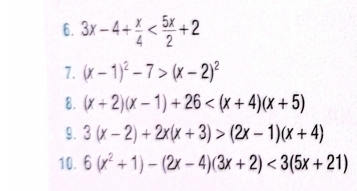 6. 3x – 4 + x/4 < 5x/2 + 2
7. (x – 1)² – 7 > (x – 2)²
8. (x + 2)(x – 1) + 26 < (x + 4)(x + 5)
9. 3 (x – 2) + 2x(x + 3) > (2x – 1)(x + 4)
10. 6 (x² + 1) – (2x – 4)(3x + 2) < 3(5x + 21)